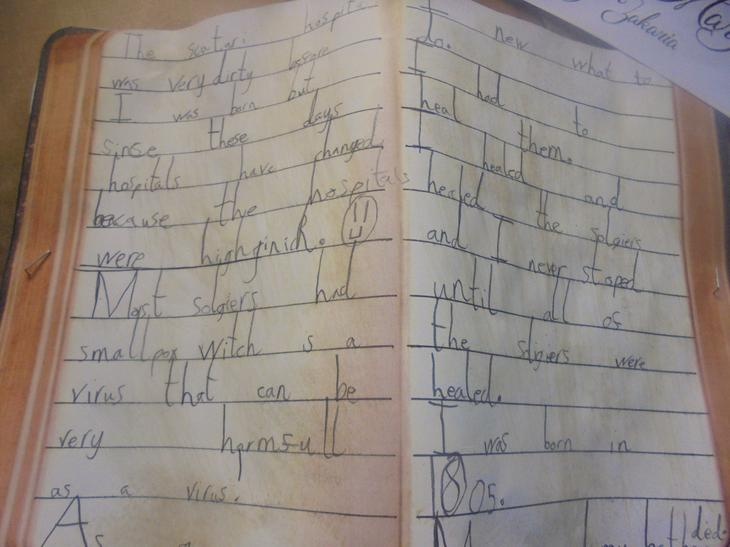 The scatari hospital
was very dirty before
I was born but
sinse those days
hospitals have changed
because the hospitals
were highginich.
Most solgiers had
small pox witch is a
virus that can be
very harmfull
as a virus.
As
I new what to
do.
I had to
heal them.
I healed and
healed the solgiers
and I never stoped
until all of
the solgiers were
healed.
I was born in
1805.
died
Sakaria